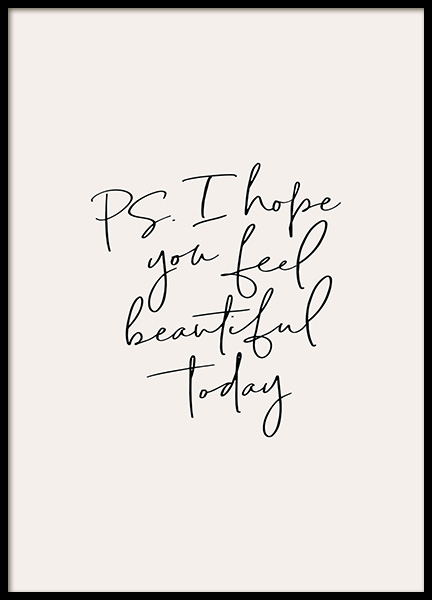 PS. I hope
you feel
beautiful
today